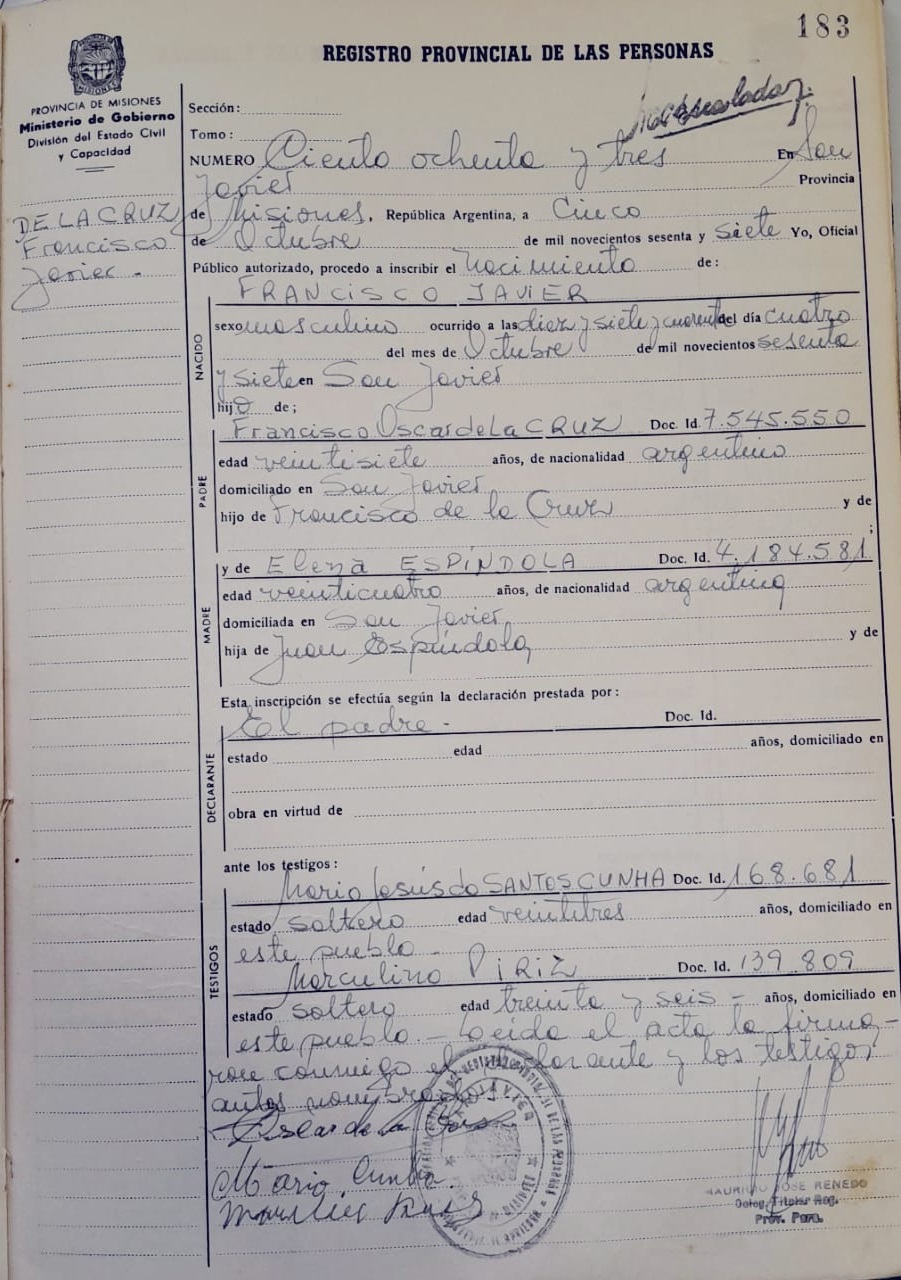 183
REGISTRO PROVINCIAL DE LAS PERSONAS
PROVINCIA DE MISIONES
Ministerio de Gobierno
División del Estado Civil
y Capacidad
DE LA CRUZ
Francisco
Javier -
Sección:
Tomo:
NUMERO Ciento ochenta y tres En San
Javier Provincia
de Misiones, República Argentina, a Cinco
de Octubre de mil novecientos sesenta y siete Yo, Oficial
Público autorizado, procedo a inscribir el nacimiento de:
FRANCISCO JAVIER
NACIDO
sexo masculino ocurrido a las diez y siete y cuarenta del día cuatro
del mes de Octubre de mil novecientos sesenta
y siete en San Javier
hijo de;
Francisco Oscar de La CRUZ Doc. Id. 7.545.550
PADRE
edad veintisiete años, de nacionalidad argentino
domiciliado en San Javier
hijo de Francisco de la Cruz y de
;
y de Elena ESPÍNDOLA Doc. Id. 4.184.581
MADRE
edad veinticuatro años, de nacionalidad argentina
domiciliada en San Javier
hija de Juan Espíndola y de
Esta inscripción se efectúa según la declaración prestada por:
El padre - Doc. Id.
DECLARANTE
estado edad años, domiciliado en
obra en virtud de
ante los testigos:
Mario Jesús do SANTOS CUNHA Doc. Id. 168.681
TESTIGOS
estado soltero edad veintitres años, domiciliado en
este pueblo -
Marculino PIRIZ Doc. Id. 139.809
estado soltero edad treinta y seis - años, domiciliado en
este pueblo - Leída el acta la firma-
ron conmigo el declarante y los testigos
antes nombrados
Oscar de la Cruz
Mario Cunha
MAURICIO JOSE RENEDO
Deleg. Titular Reg.
Prov. Pers.